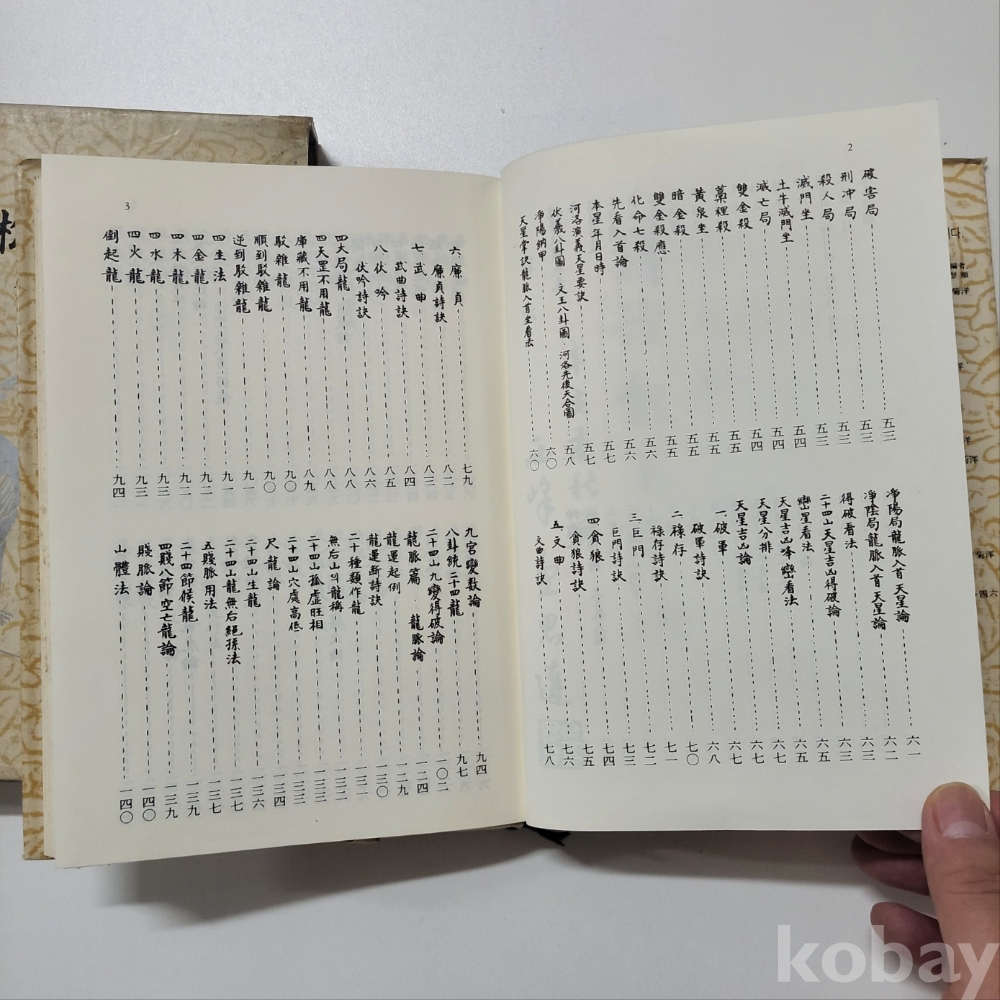 2
破害局 五三
刑冲局 五三
殺人局 五三
滅門坐 五四
土牛滅門坐 五四
滅亡局 五四
雙金殺 五五
藁裡殺 五五
黃泉坐 五五
暗金殺 五五
雙金殺應 五六
化命七殺 五六
先看入首論 五六
本星年月日時 五七
河洛演義天星要訣 五七
伏羲八卦圖 文王八卦圖 河洛先後天合圖 五八
淨陽納甲 六〇
天星掌訣龍脈入首坐看法 六〇
淨陽局龍脈入首天星論 六一
淨陰局龍脈入首天星論 六三
得破看法 六三
二十四山天星吉凶得破論 六五
巒星看法 六五
天星吉凶峰巒看法 六六
天星分排 六七
天星吉凶論 六七
一 破軍 六八
破軍詩訣 七〇
二 祿存 七一
祿存詩訣 七二
三 巨門 七三
巨門詩訣 七四
四 貪狼 七五
貪狼詩訣 七六
五 文曲 七七
文曲詩訣 七八
3
六 廉貞 七九
廉貞詩訣 八二
七 武曲 八三
武曲詩訣 八四
八 伏吟 八五
伏吟詩訣 八六
四大局龍 八七
四天罡不用龍 八八
庫藏不用龍 八九
駁雜龍 九〇
順到駁雜龍 九〇
逆到駁雜龍 九一
四生法 九一
四金龍 九二
四木龍 九二
四水龍 九三
四火龍 九三
倒起龍 九四
九宮變數論 九四
八卦統二十四龍 九七
二十四山九變得破論 一〇二
龍脈篇 龍脈論 一二四
龍運起例 一二九
龍運斷詩訣 一三〇
二十種類作龍 一三一
無后山의龍稱 一三二
二十四山孤虛旺相 一三三
二十四山穴處高低 一三三
尺龍論 一三四
二十四山生龍 一三六
二十四山龍無后絕孫法 一三七
五賤脈用法 一三七
二十四節候龍 一三九
四賤八節空亡龍論 一三九
賤脈論 一四〇
山體法 一四〇
kobay